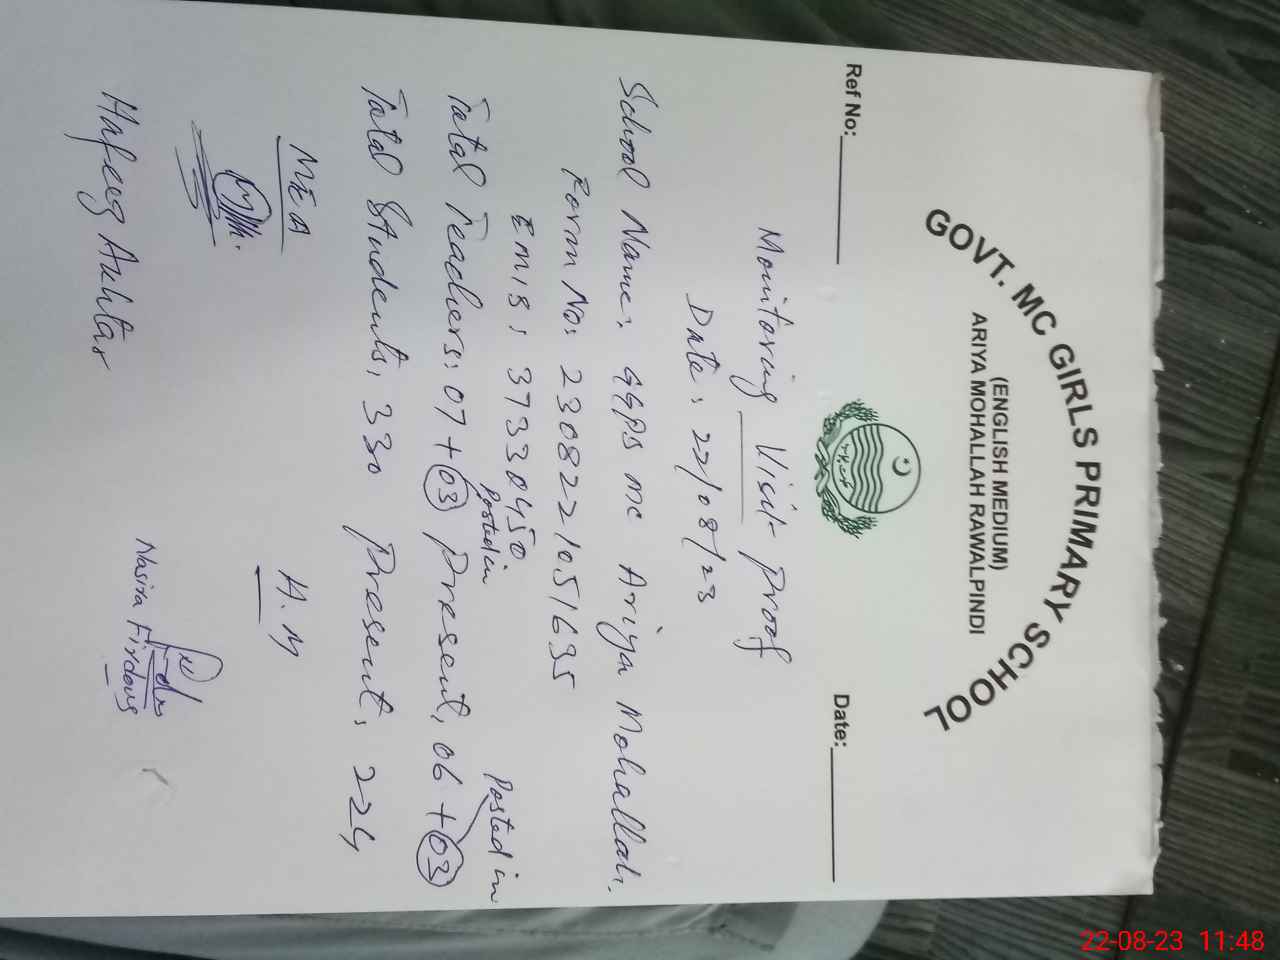 GOVT. MC GIRLS PRIMARY SCHOOL
(ENGLISH MEDIUM)
ARIYA MOHALLAH RAWALPINDI
Ref No:
Date:
Monitoring Visit Proof
Date: 22/08/23
School Name: GGPS MC Ariya Mohallah.
Form No: 230822105/635
EMIS: 37330450
Posted in
Posted in
Total Teachers: 07 + 03 Present, 06 + 03
Total Students, 330 Present, 224
MEA
H.M
Hafeez Akhtar
Nasira Firdous
22-08-23 11:48